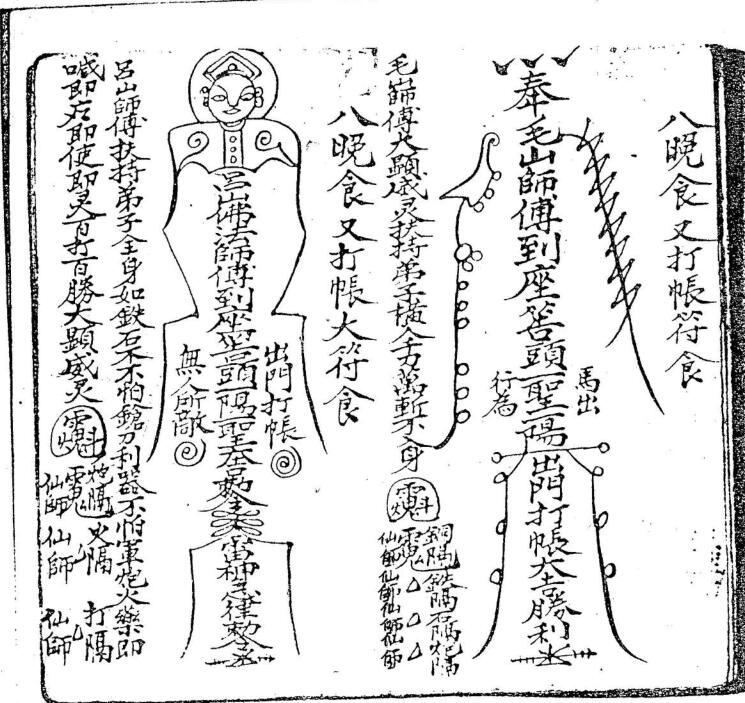 八晚食又打帳符食
奉毛山師傅到座筶頭一聖一陽出門打帳大吉勝利
馬出
行為
毛山師傅大顯威灵扶持弟子橫金千方萬斬不入身
銅隔鉄隔石隔炮隔
仙師仙師仙師仙師
八晚食又打帳大符食
呂山佛法師傅到座筶頭一陽一聖吉勅令
雷神急律勅令
出門打帳
無人所敵
呂山師傅扶持弟子全身如鉄石不怕鎗刀利器不怕軍炮火藥即
喊即在即使即灵百打百勝大顯威灵
炮隔 火隔 打隔
仙師 仙師 仙師